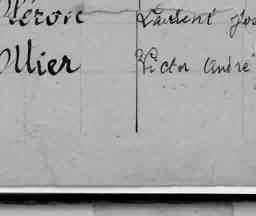 Héron Laurent Jos
Ollier Victor André